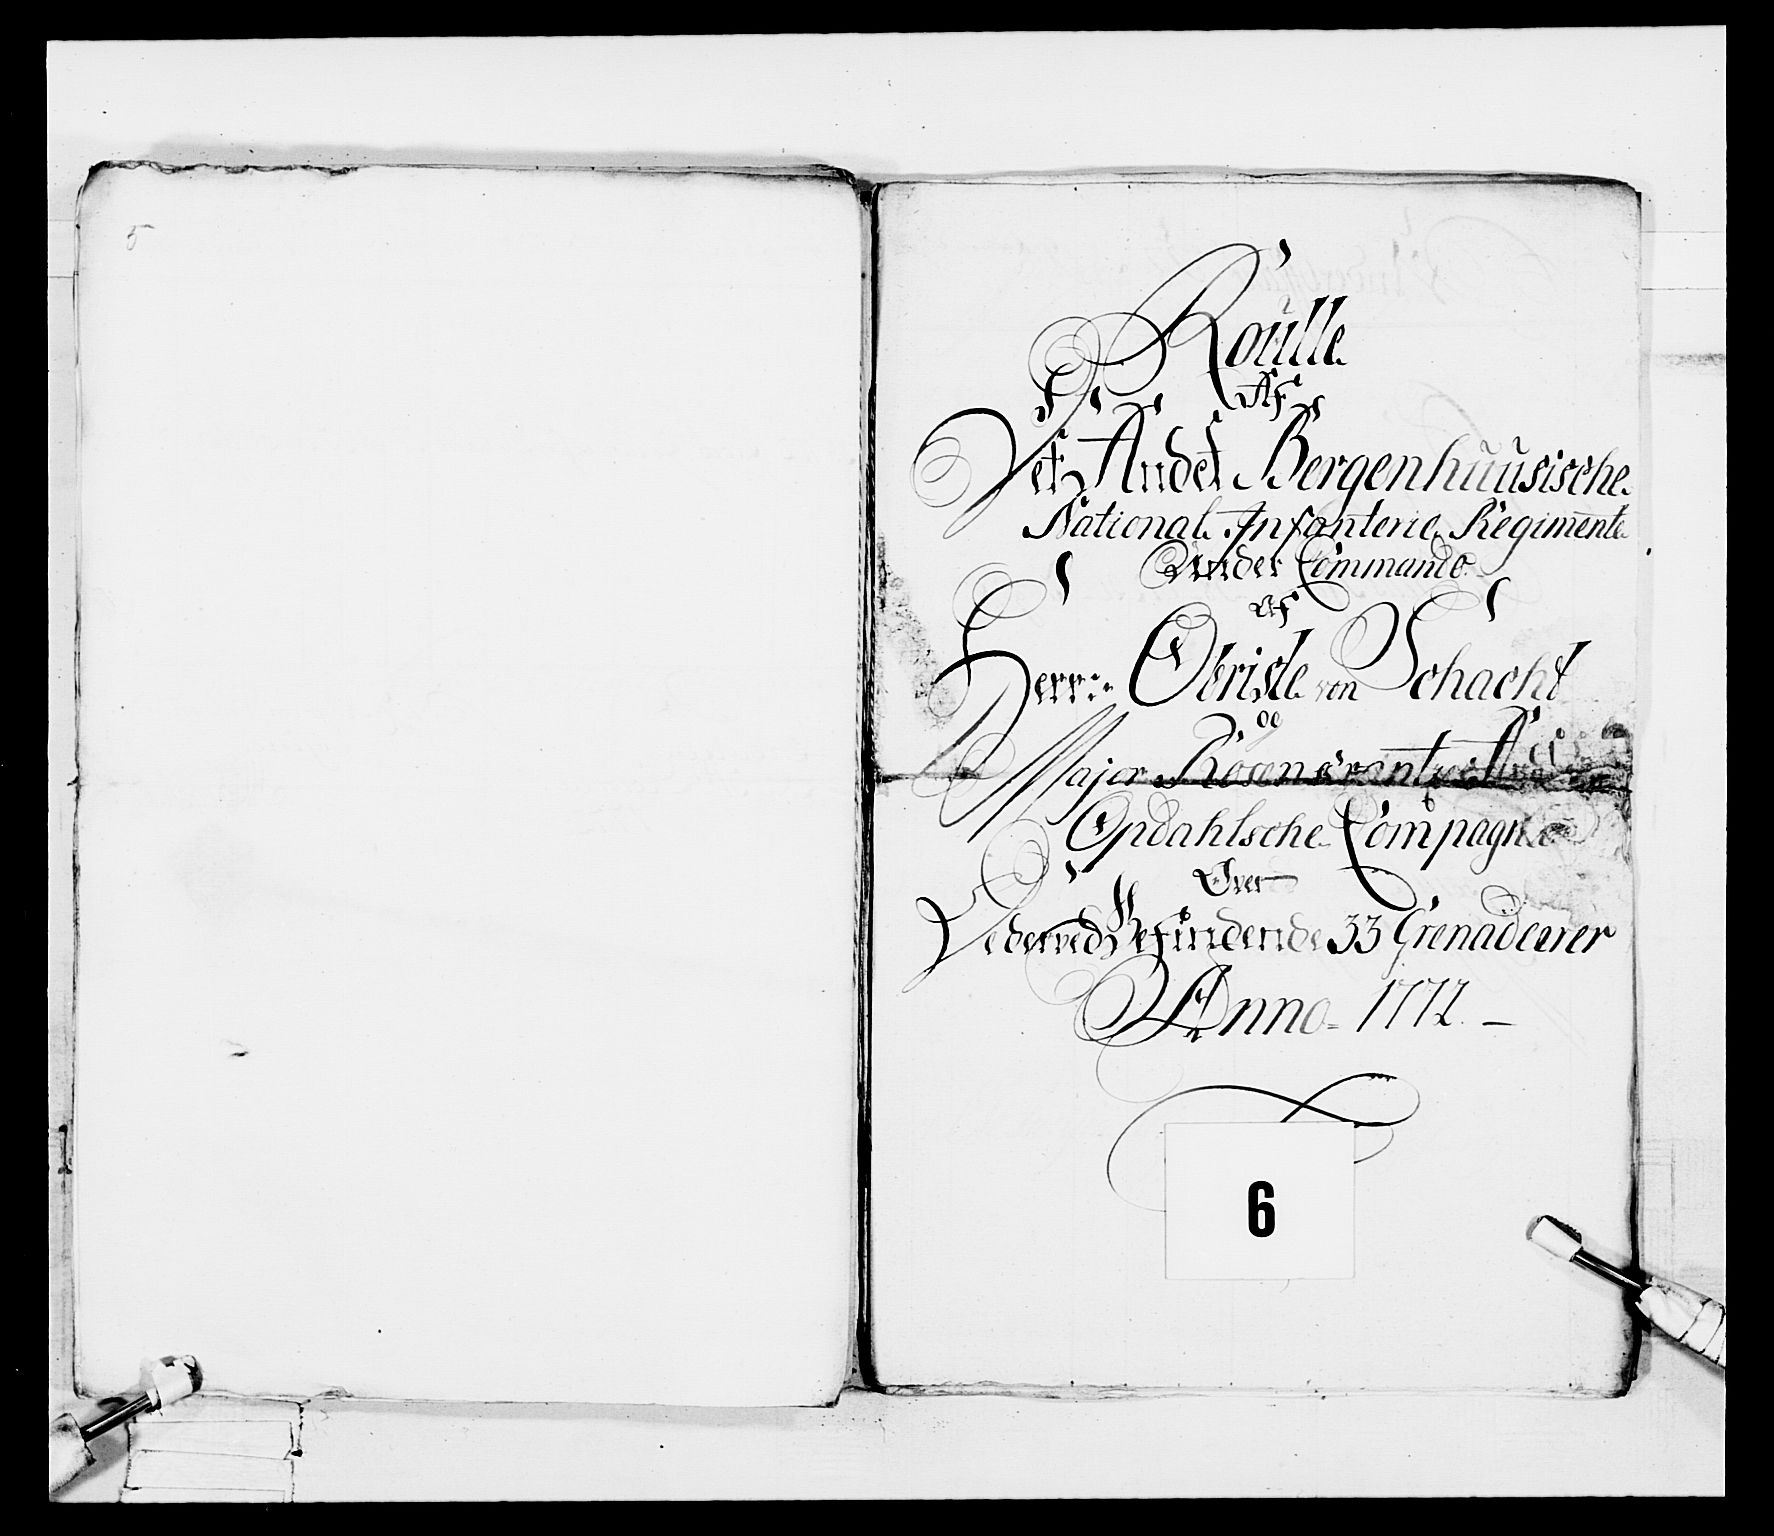 5
Roulle
Af
Det Andet Bergenhuusische
National Infanterie Regimente
Under Commando
Af
Herr: Obriste von Schacht
og
Major Rosencrantz
Opdahlsche Compagnie
Over
Vederved Befindende 33 Grenadeerer
Anno 1772. —
6